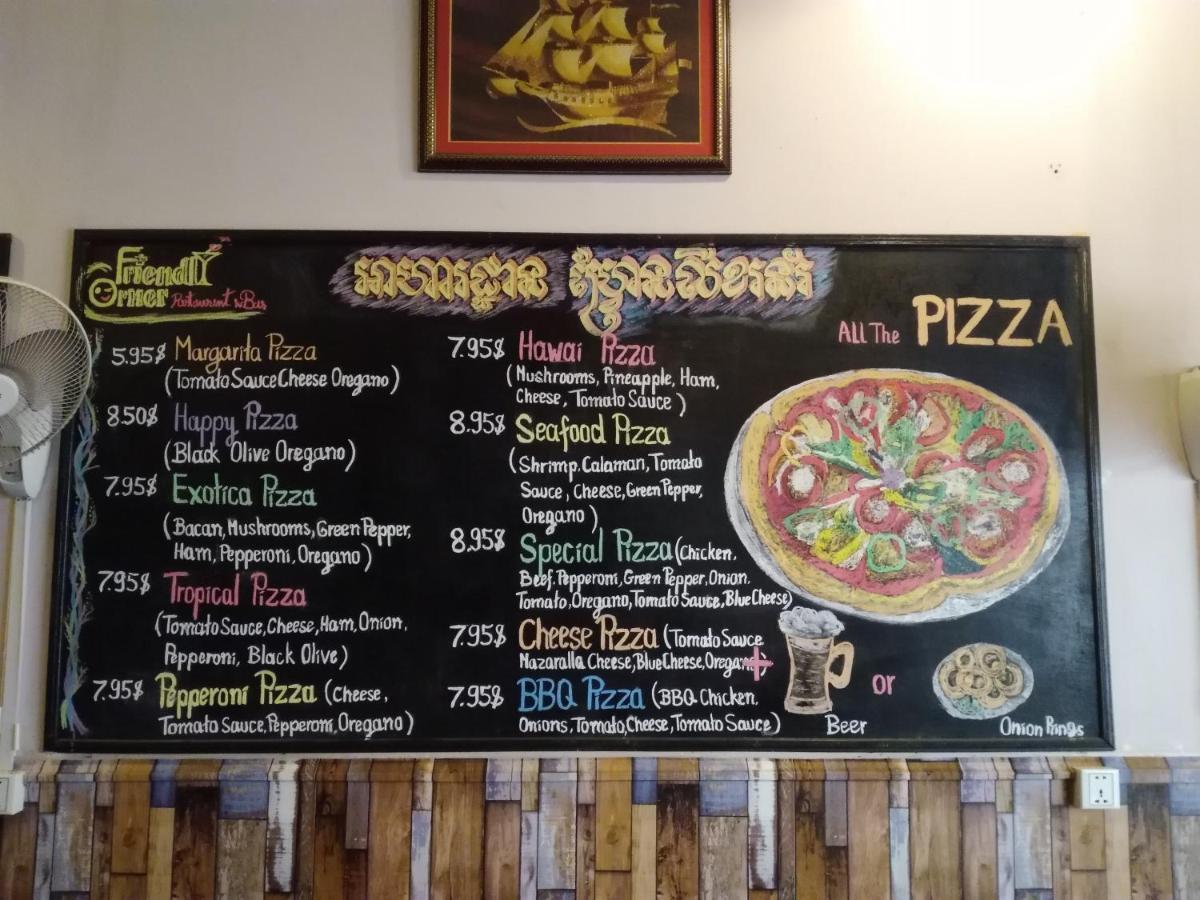 Friendly
Corner Restaurent & Bar
អាហារដ្ឋាន
All The PIZZA
5.95$ Margarita Pizza
(Tomato Sauce Cheese Oregano)
8.50$ Happy Pizza
(Black Olive Oregano)
7.95$ Exotica Pizza
(Bacan, Mushrooms, Green Pepper,
Ham, Pepperoni, Oregano)
7.95$ Tropical Pizza
(Tomato Sauce, Cheese, Ham, Onion,
Pepperoni, Black Olive)
7.95$ Pepperoni Pizza (Cheese,
Tomato Sauce, Pepperoni, Oregano)
7.95$ Hawai Pizza
(Mushrooms, Pineapple, Ham,
Cheese, Tomato Sauce)
8.95$ Seafood Pizza
(Shrimp, Calamari, Tomato
Sauce, Cheese, Green Pepper,
Oregano)
8.95$ Special Pizza (Chicken,
Beef, Pepperoni, Green Pepper, Onion,
Tomato, Oregano, Tomato Sauce, Blue Cheese)
7.95$ Cheese Pizza (Tomato Sauce
Mazaralla Cheese, Blue Cheese, Oregano)
7.95$ BBQ Pizza (BBQ Chicken,
Onions, Tomato, Cheese, Tomato Sauce)
+
or
Beer
Onion Rings